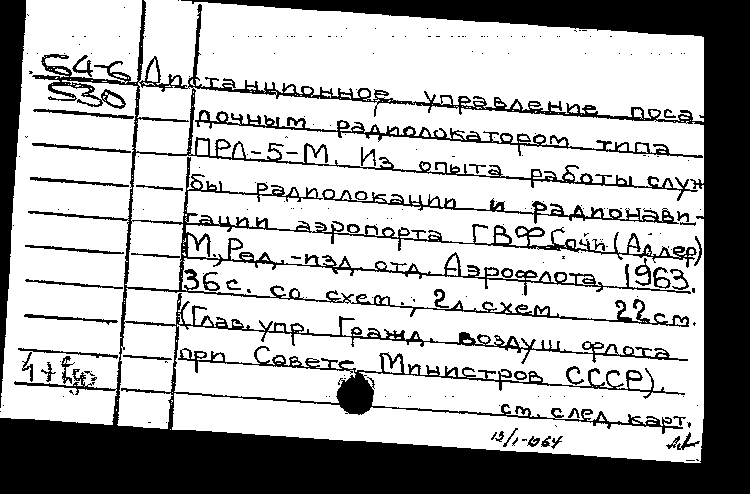 64-6 Дистанционное управление поса-
530
дочным радиолокатором типа
ПРЛ-5-М. Из опыта работы служ
бы радиолокации и радионави-
гации аэропорта ГВФ Сочи (Адлер)
М., Ред.-изд. отд. Аэрофлота, 1963.
36 с. со схем.; 2 л. схем. 22 см.
(Глав. упр. Гражд. воздуш. флота
при Совете Министров СССР).
ст. след. карт.
13/I-1964